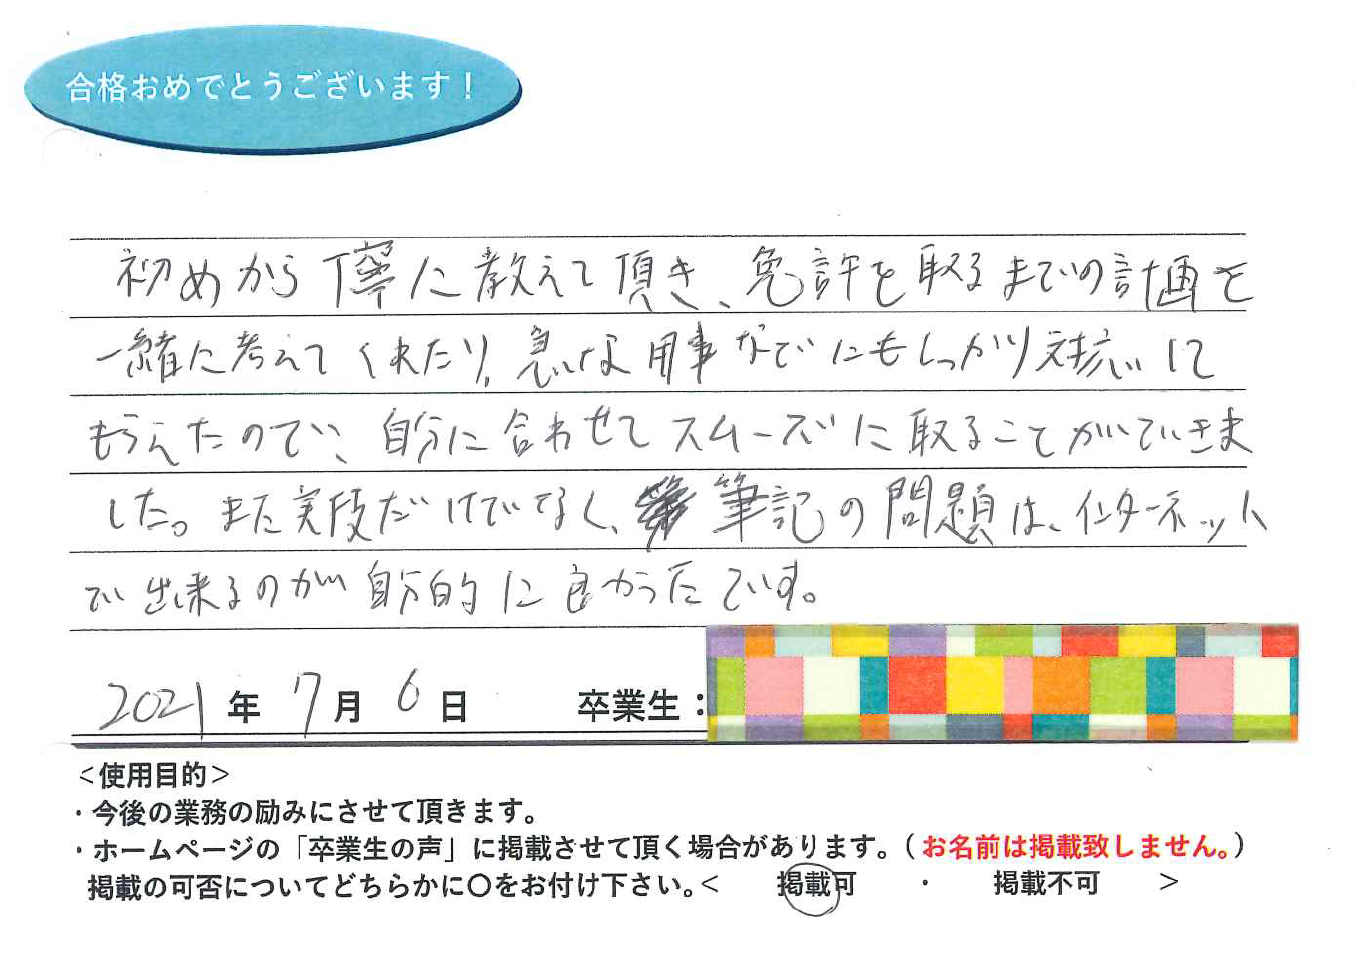 合格おめでとうございます！
初めから丁寧に教えて頂き、免許を取るまでの計画を
一緒に考えてくれたり、急な用事などにもしっかり対応して
もらえたので、自分に合わせてスムーズに取ることができま
した。また実技だけでなく、筆記の問題は、インターネット
で出来るのが自分的に良かったです。
2021年7月6日 卒業生：
＜使用目的＞
・今後の業務の励みにさせて頂きます。
・ホームページの「卒業生の声」に掲載させて頂く場合があります。（お名前は掲載致しません。）
掲載の可否についてどちらかに〇をお付け下さい。＜ 掲載可 ・ 掲載不可 ＞